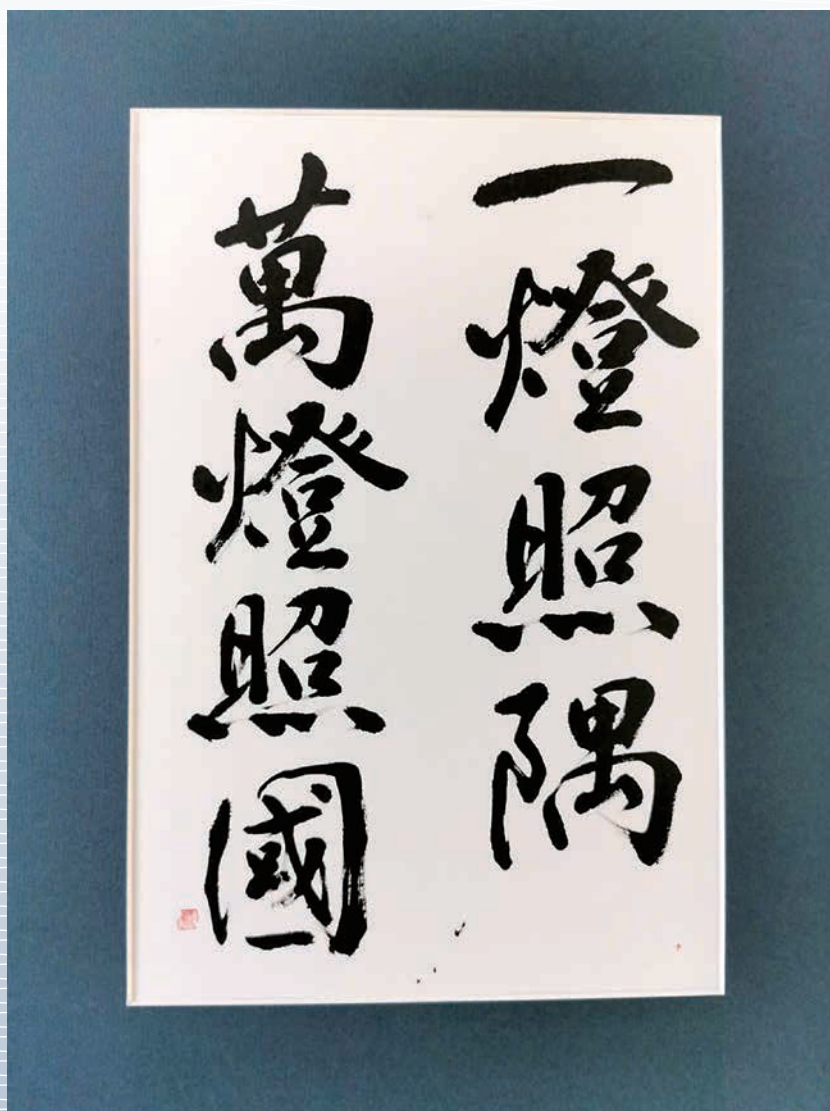 一燈照隅
萬燈照國